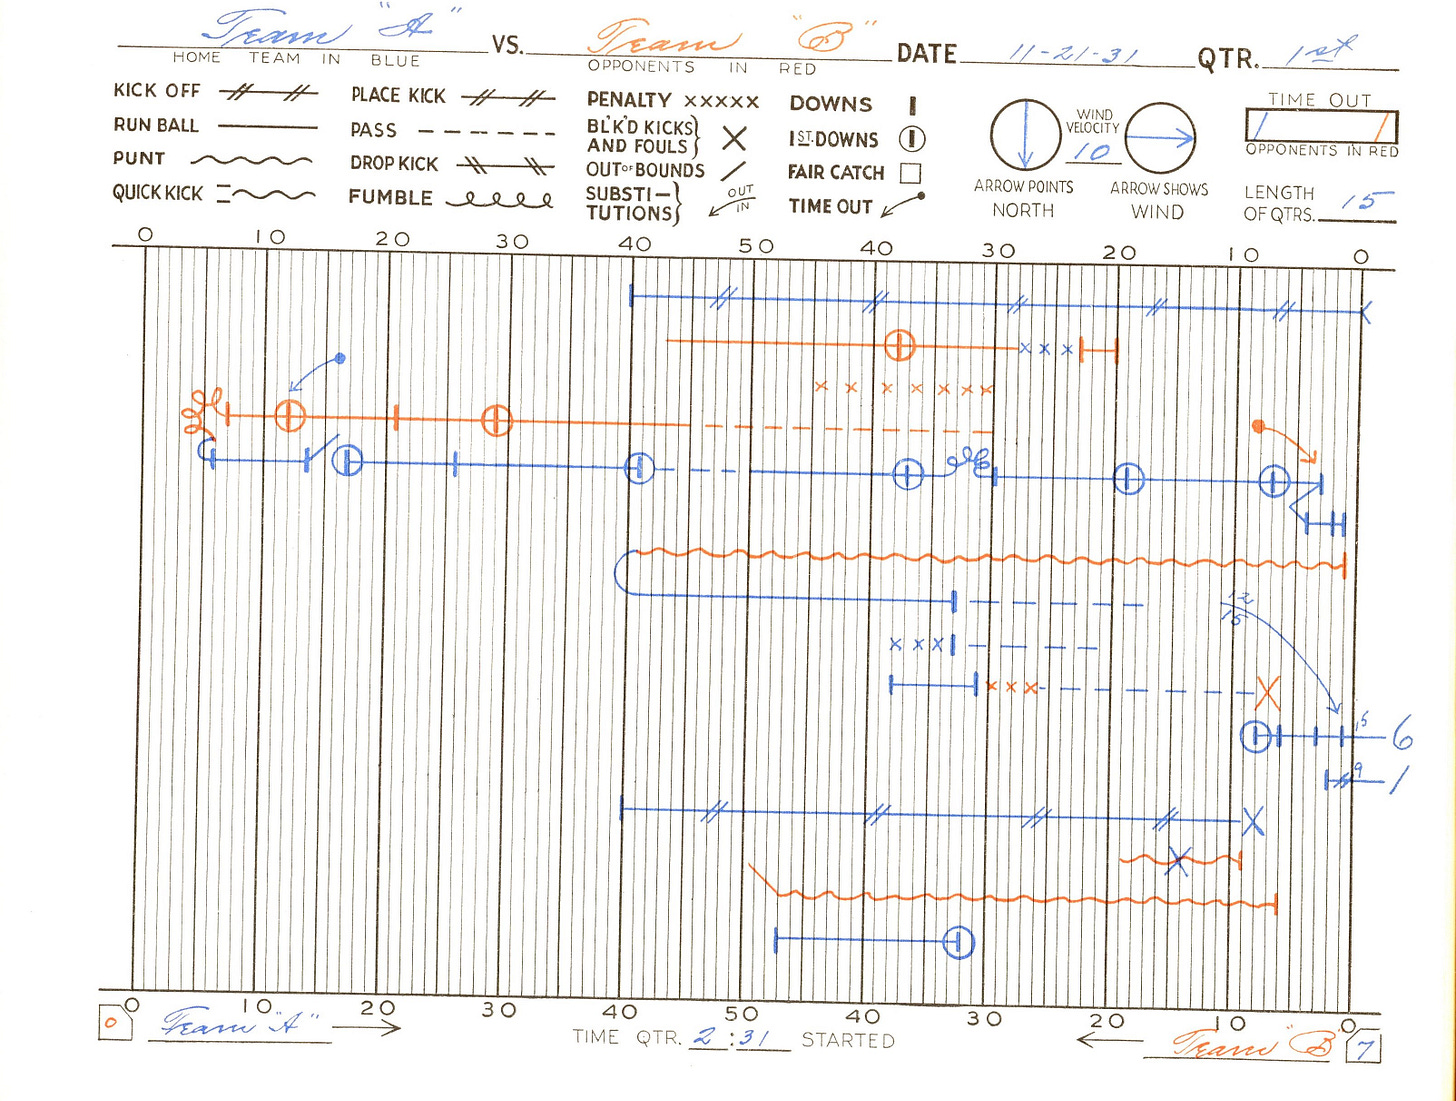 Team "A" VS. Team "B" DATE 11-21-31 QTR. 1st
HOME TEAM IN BLUE OPPONENTS IN RED
KICK OFF PLACE KICK PENALTY XXXXX DOWNS WIND VELOCITY 10 TIME OUT
RUN BALL PASS BL'K'D KICKS AND FOULS 1ST. DOWNS OPPONENTS IN RED
PUNT DROP KICK OUT OF BOUNDS FAIR CATCH ARROW POINTS NORTH ARROW SHOWS WIND
QUICK KICK FUMBLE SUBSTI-TUTIONS OUT IN TIME OUT LENGTH OF QTRS. 15
0 10 20 30 40 50 40 30 20 10 0
12
15
15 6
9 1
0 10 20 30 40 50 40 30 20 10 0
0 Team "A" TIME QTR. 2:31 STARTED Team "B" 7